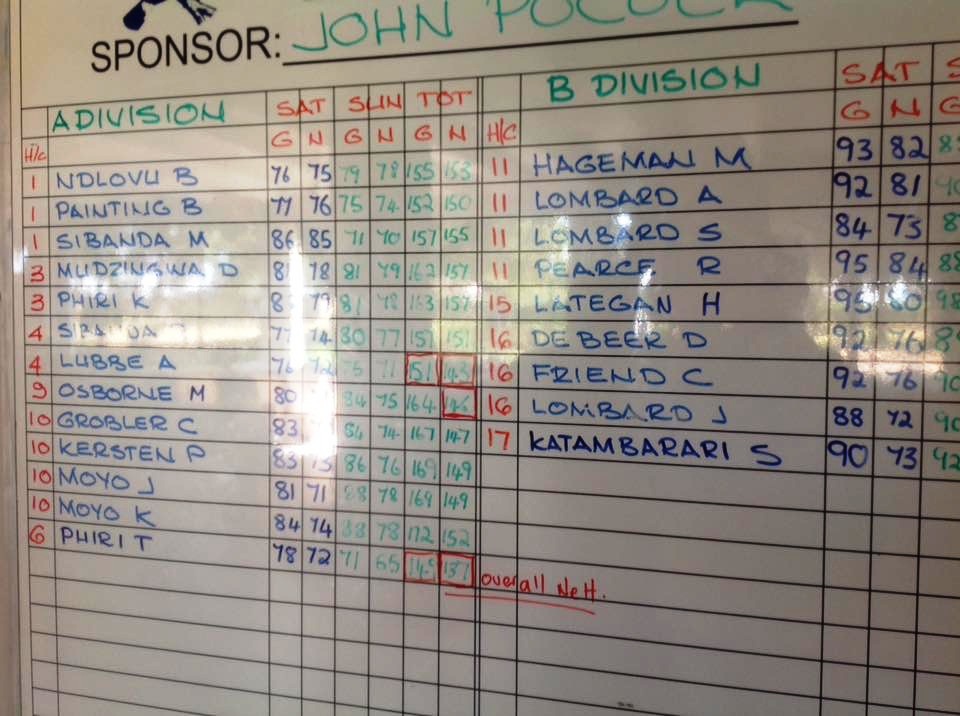 SPONSOR: JOHN POCOCK
A DIVISION SAT SUN TOT B DIVISION SAT
H/C G N G N G N H/C G N G
1 NDLOVU B 76 75 79 78 155 153 11 HAGEMAN M 93 82
1 PAINTING B 77 76 75 74 152 150 11 LOMBARD A 92 81
1 SIBANDA M 86 85 71 70 157 155 11 LOMBARD S 84 73
3 MUDZINGWA D 81 78 81 79 162 157 11 PEARCE R 95 84 88
3 PHIRI K 79 81 78 163 157 15 LATEGAN H 95 80 98
4 SIBANDA 77 74 80 77 157 151 16 DE BEER D 92 76
4 LUBBE A 76 72 75 71 151 143 16 FRIEND C 92 76 90
9 OSBORNE M 80 84 75 164 146 16 LOMBARD J 88 72 90
10 GROBLER C 83 84 74 167 147 17 KATAMBARARI S 90 73 92
10 KERSTEN P 83 73 86 76 169 149
10 MOYO J 81 71 88 78 169 149
10 MOYO K 84 74 88 78 172 152
6 PHIRI T 78 72 71 65 149 137 overall Nett.